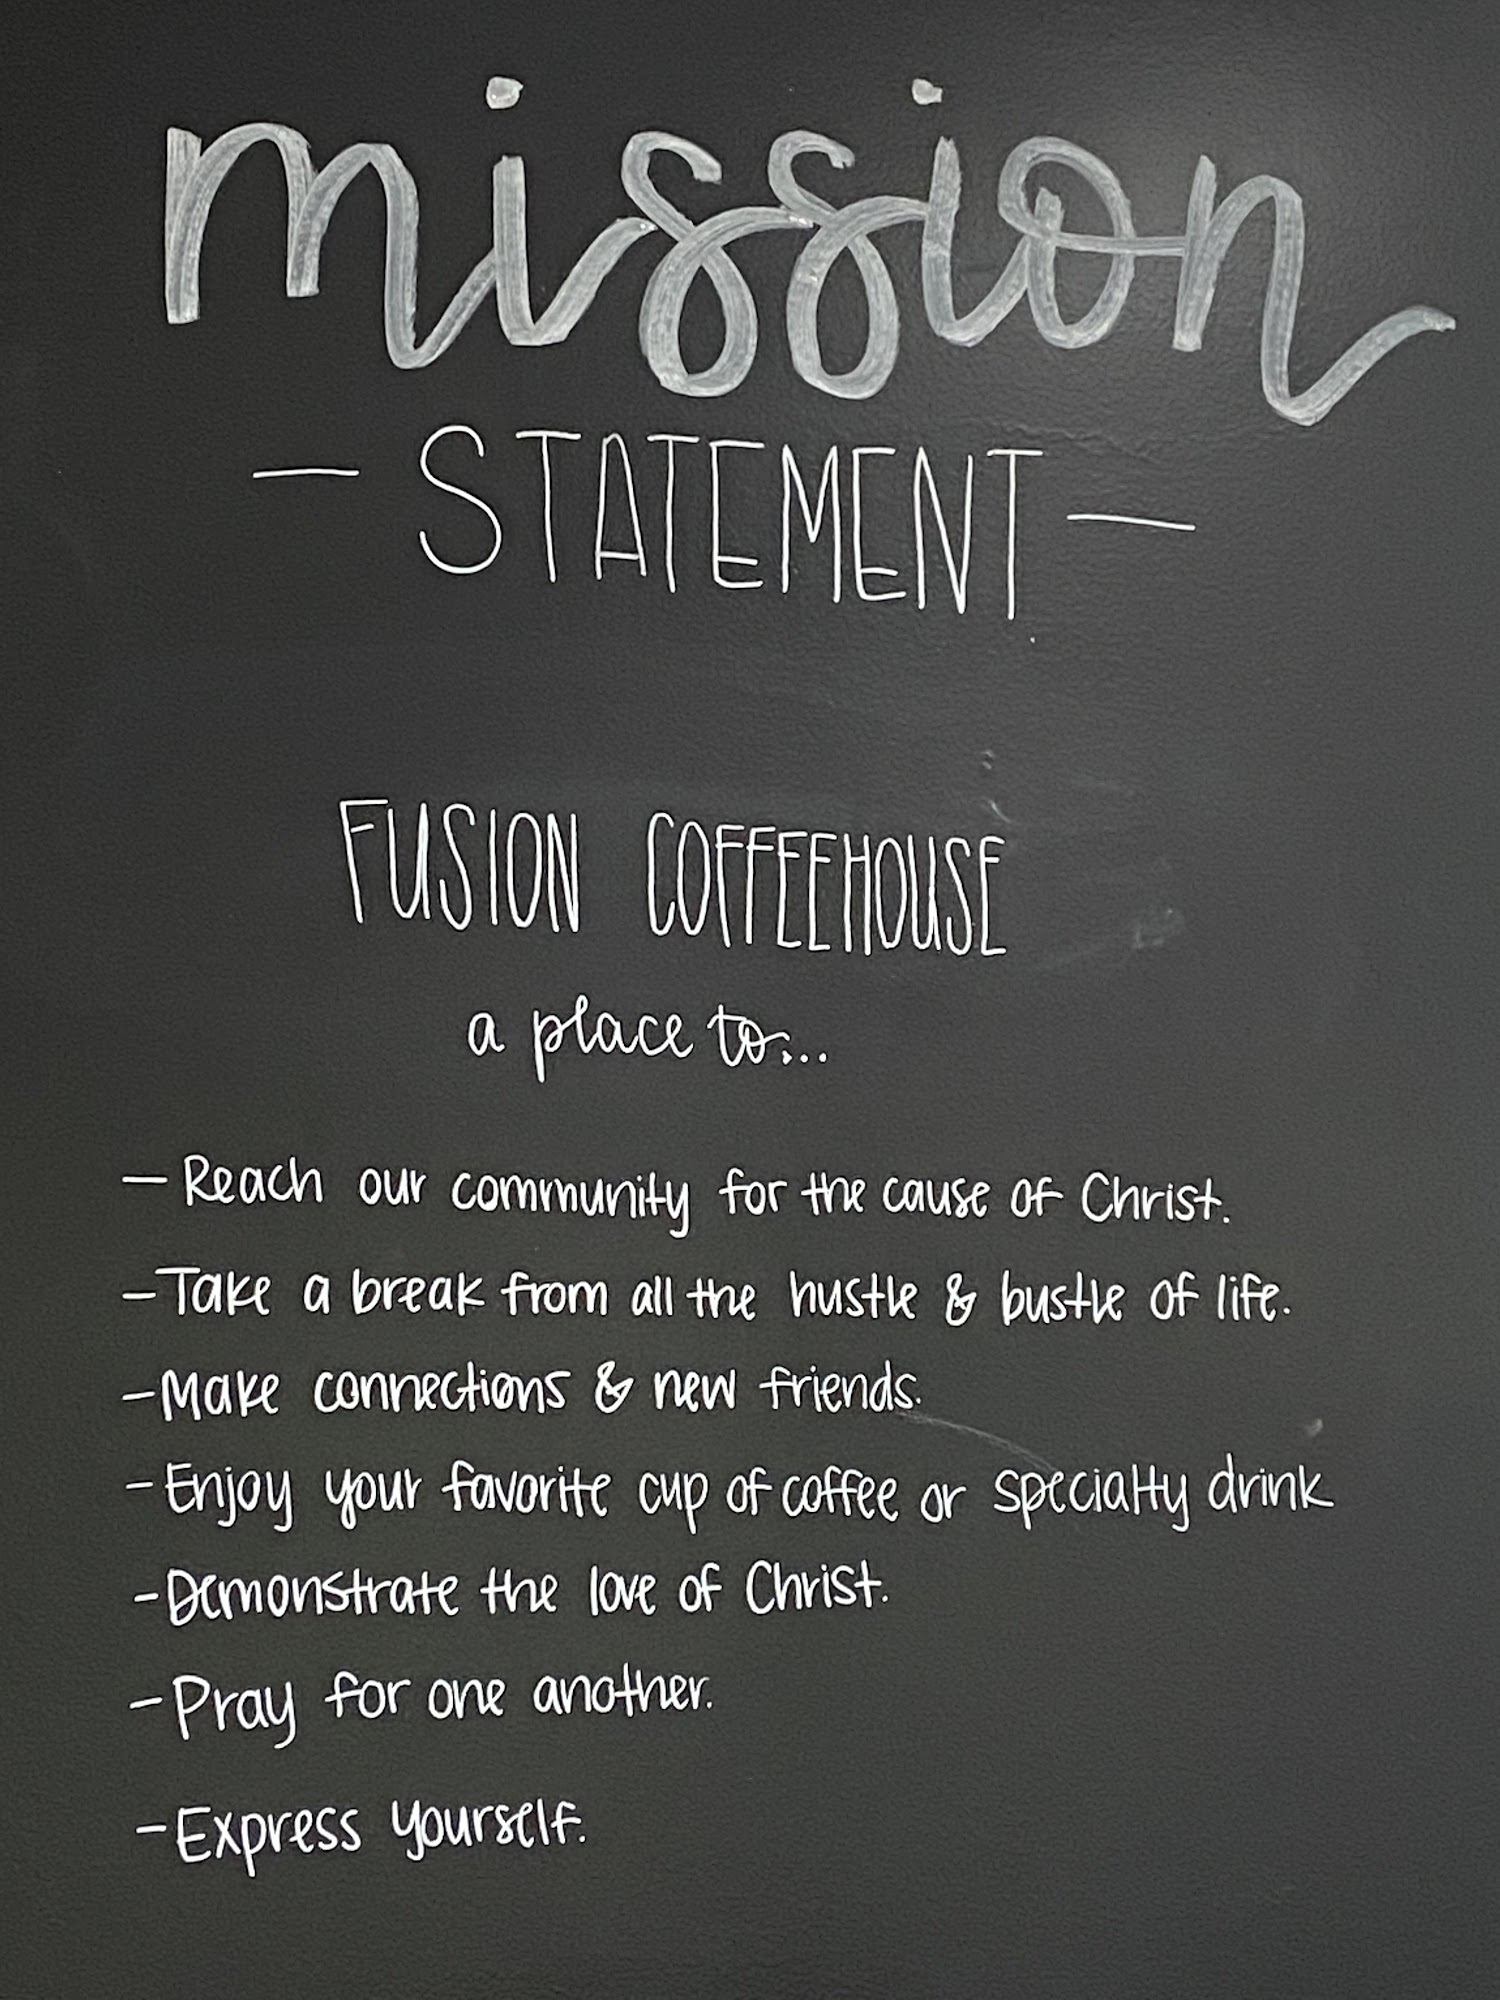 mission
— STATEMENT —
FUSION COFFEEHOUSE
a place to...
— Reach our community for the cause of Christ.
— Take a break from all the hustle & bustle of life.
— Make connections & new friends.
— Enjoy your favorite cup of coffee or specialty drink
— Demonstrate the love of Christ.
— Pray for one another.
— Express yourself.